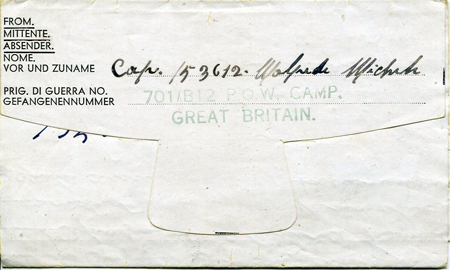 FROM.
MITTENTE.
ABSENDER.
NOME.
VOR UND ZUNAME
Cap. 153612. Wolfredo Michele
PRIG. DI GUERRA NO.
GEFANGENENNUMMER
701/B12 P.O.W. CAMP.
GREAT BRITAIN.